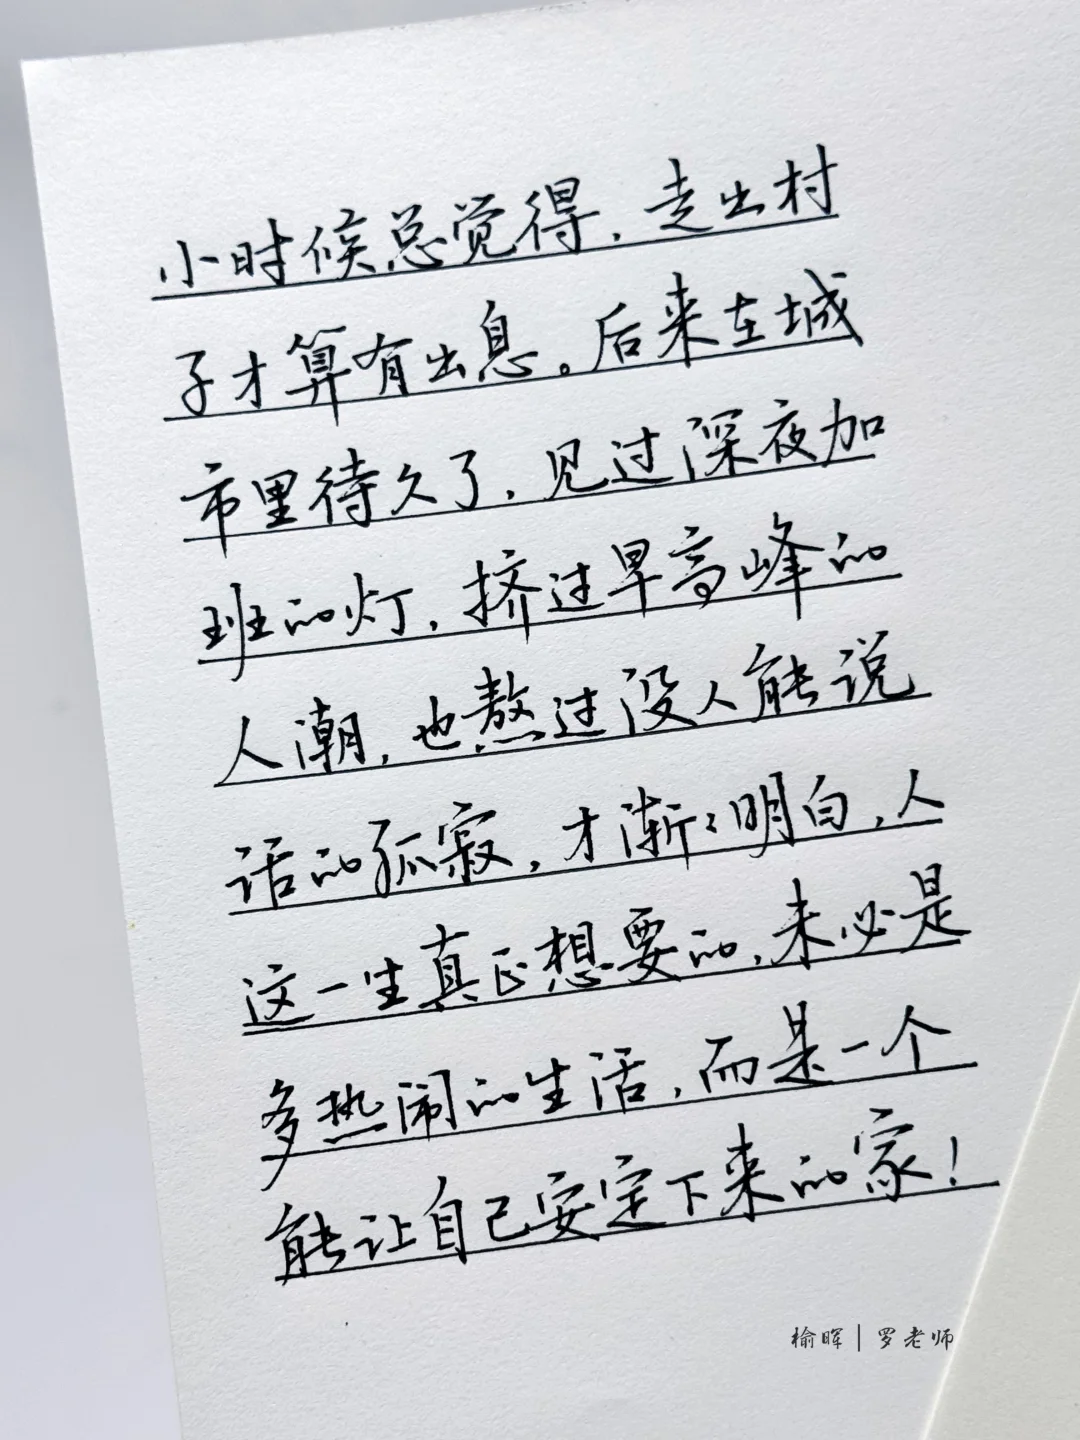 小时候总觉得，走出村
子才算有出息。后来在城
市里待久了，见过深夜加
班的灯，挤过早高峰的
人潮，也熬过没人能说
话的孤寂，才渐々明白，人
这一生真正想要的，未必是
多热闹的生活，而是一个
能让自己安定下来的家！
榆晖｜罗老师